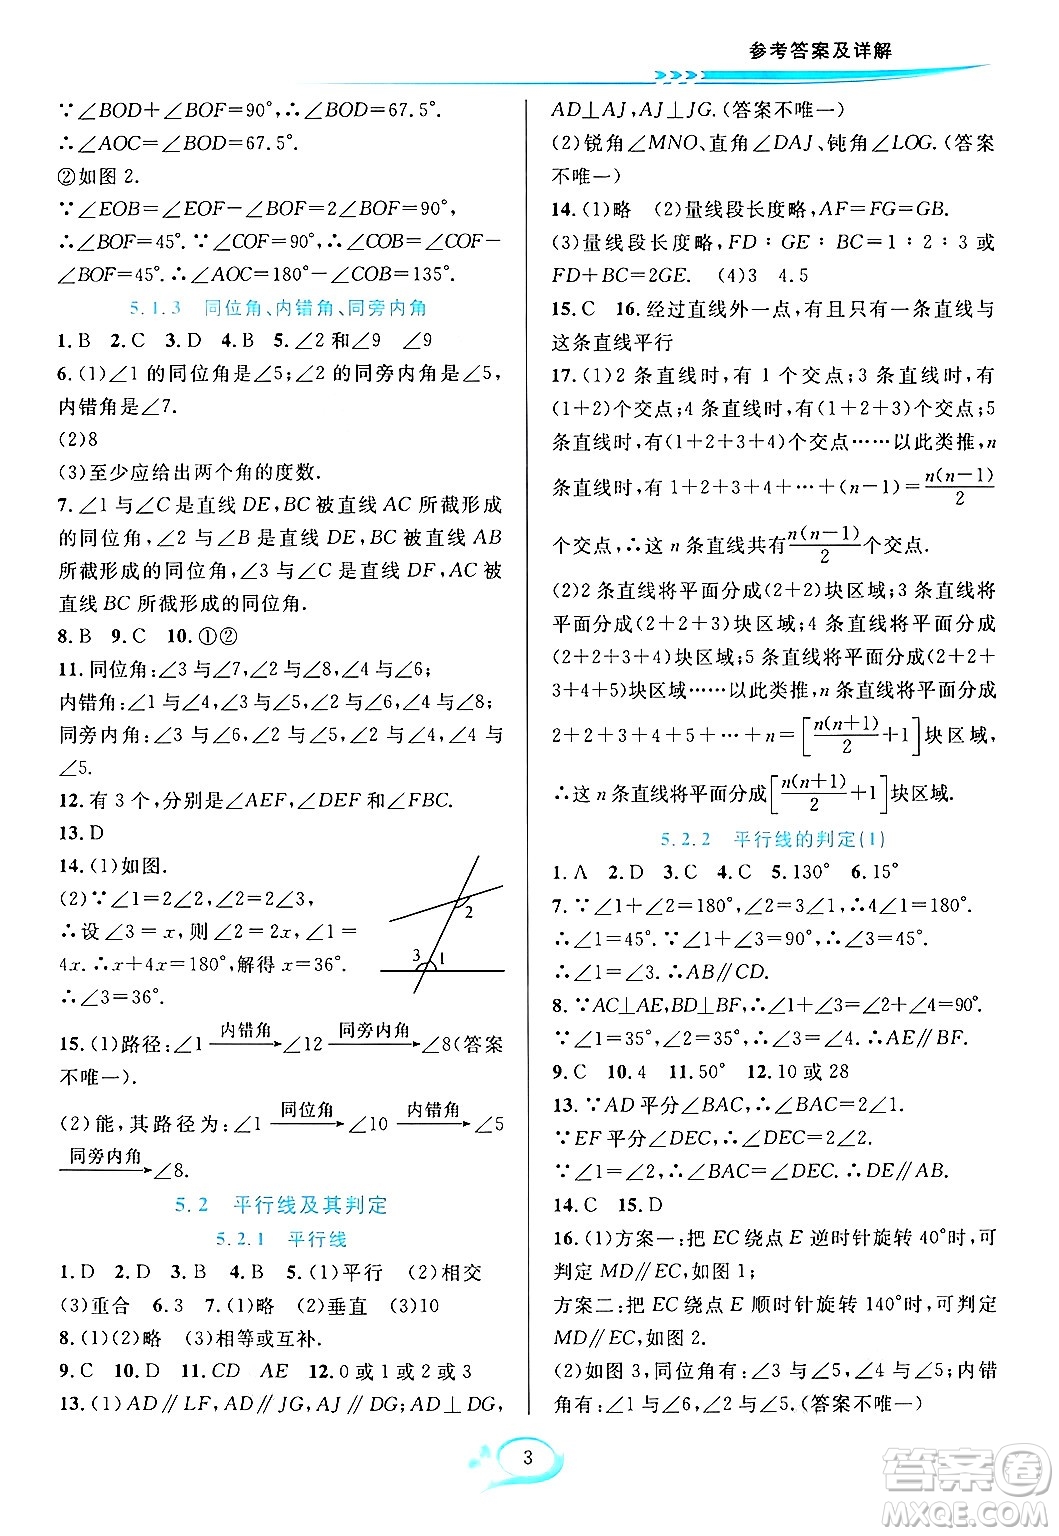 参考答案及详解
∵∠BOD+∠BOF=90°,∴∠BOD=67.5°.
∴∠AOC=∠BOD=67.5°.
②如图 2.
∵∠EOB=∠EOF-∠BOF=2∠BOF=90°,
∴∠BOF=45°.∵∠COF=90°,∴∠COB=∠COF-
∠BOF=45°.∴∠AOC=180°-∠COB=135°.
5.1.3 同位角、内错角、同旁内角
1.B 2.C 3.D 4.B 5.∠2 和∠9 ∠9
6.(1)∠1 的同位角是∠5;∠2 的同旁内角是∠5,
内错角是∠7.
(2)8
(3)至少应给出两个角的度数.
7.∠1 与∠C 是直线 DE,BC 被直线 AC 所截形成
的同位角,∠2 与∠B 是直线 DE,BC 被直线 AB
所截形成的同位角,∠3 与∠C 是直线 DF,AC 被
直线 BC 所截形成的同位角.
8.B 9.C 10.①②
11.同位角:∠3 与∠7,∠2 与∠8,∠4 与∠6;
内错角:∠1 与∠4,∠3 与∠5,∠2 与∠6,∠4 与∠8;
同旁内角:∠3 与∠6,∠2 与∠5,∠2 与∠4,∠4 与
∠5.
12.有 3 个,分别是∠AEF,∠DEF 和∠FBC.
13.D
14.(1)如图.
(2)∵∠1=2∠2,∠2=2∠3,
∴设∠3=x,则∠2=2x,∠1=
4x.∴x+4x=180°,解得 x=36°.
∴∠3=36°.
2
3 1
15.(1)路径:∠1 内错角→∠12 同旁内角→∠8(答案
不唯一).
(2)能,其路径为:∠1 同位角→∠10 内错角→∠5
同旁内角→∠8.
5.2 平行线及其判定
5.2.1 平行线
1.D 2.D 3.B 4.B 5.(1)平行 (2)相交
(3)重合 6.3 7.(1)略 (2)垂直 (3)10
8.(1)(2)略 (3)相等或互补.
9.C 10.D 11.CD AE 12.0 或 1 或 2 或 3
13.(1)AD∥LF,AD∥JG,AJ∥DG;AD⊥DG,
AD⊥AJ,AJ⊥JG.(答案不唯一)
(2)锐角∠MNO、直角∠DAJ、钝角∠LOG.(答案
不唯一)
14.(1)略 (2)量线段长度略,AF=FG=GB.
(3)量线段长度略,FD∶GE∶BC=1∶2∶3 或
FD+BC=2GE. (4)3 4.5
15.C 16.经过直线外一点,有且只有一条直线与
这条直线平行
17.(1)2 条直线时,有 1 个交点;3 条直线时,有
(1+2)个交点;4 条直线时,有(1+2+3)个交点;5
条直线时,有(1+2+3+4)个交点……以此类推,n
条直线时,有 1+2+3+4+…+(n-1)=n(n-1)/2
个交点,∴这 n 条直线共有n(n-1)/2个交点.
(2)2 条直线将平面分成(2+2)块区域;3 条直线将
平面分成(2+2+3)块区域;4 条直线将平面分成
(2+2+3+4)块区域;5 条直线将平面分成(2+2+
3+4+5)块区域……以此类推,n 条直线将平面分成
2+2+3+4+5+…+n=[n(n+1)/2+1]块区域,
∴这 n 条直线将平面分成[n(n+1)/2+1]块区域.
5.2.2 平行线的判定(1)
1.A 2.D 3.C 4.C 5.130° 6.15°
7.∵∠1+∠2=180°,∠2=3∠1,∴4∠1=180°.
∴∠1=45°.∵∠1+∠3=90°,∴∠3=45°.
∴∠1=∠3.∴AB∥CD.
8.∵AC⊥AE,BD⊥BF,∴∠1+∠3=∠2+∠4=90°.
∵∠1=35°,∠2=35°,∴∠3=∠4.∴AE∥BF.
9.C 10.4 11.50° 12.10 或 28
13.∵AD 平分∠BAC,∴∠BAC=2∠1.
∵EF 平分∠DEC,∴∠DEC=2∠2.
∵∠1=∠2,∴∠BAC=∠DEC.∴DE∥AB.
14.C 15.D
16.(1)方案一:把 EC 绕点 E 逆时针旋转 40°,可
判定 MD∥EC,如图 1;
方案二:把 EC 绕点 E 顺时针旋转 140°,可判定
MD∥EC,如图 2.
(2)如图 3,同位角有:∠3 与∠1,∠5 与∠9;内错
角有:∠5 与∠1,∠4 与∠2.(答案不唯一)
3
答案圈
MXQE.COM